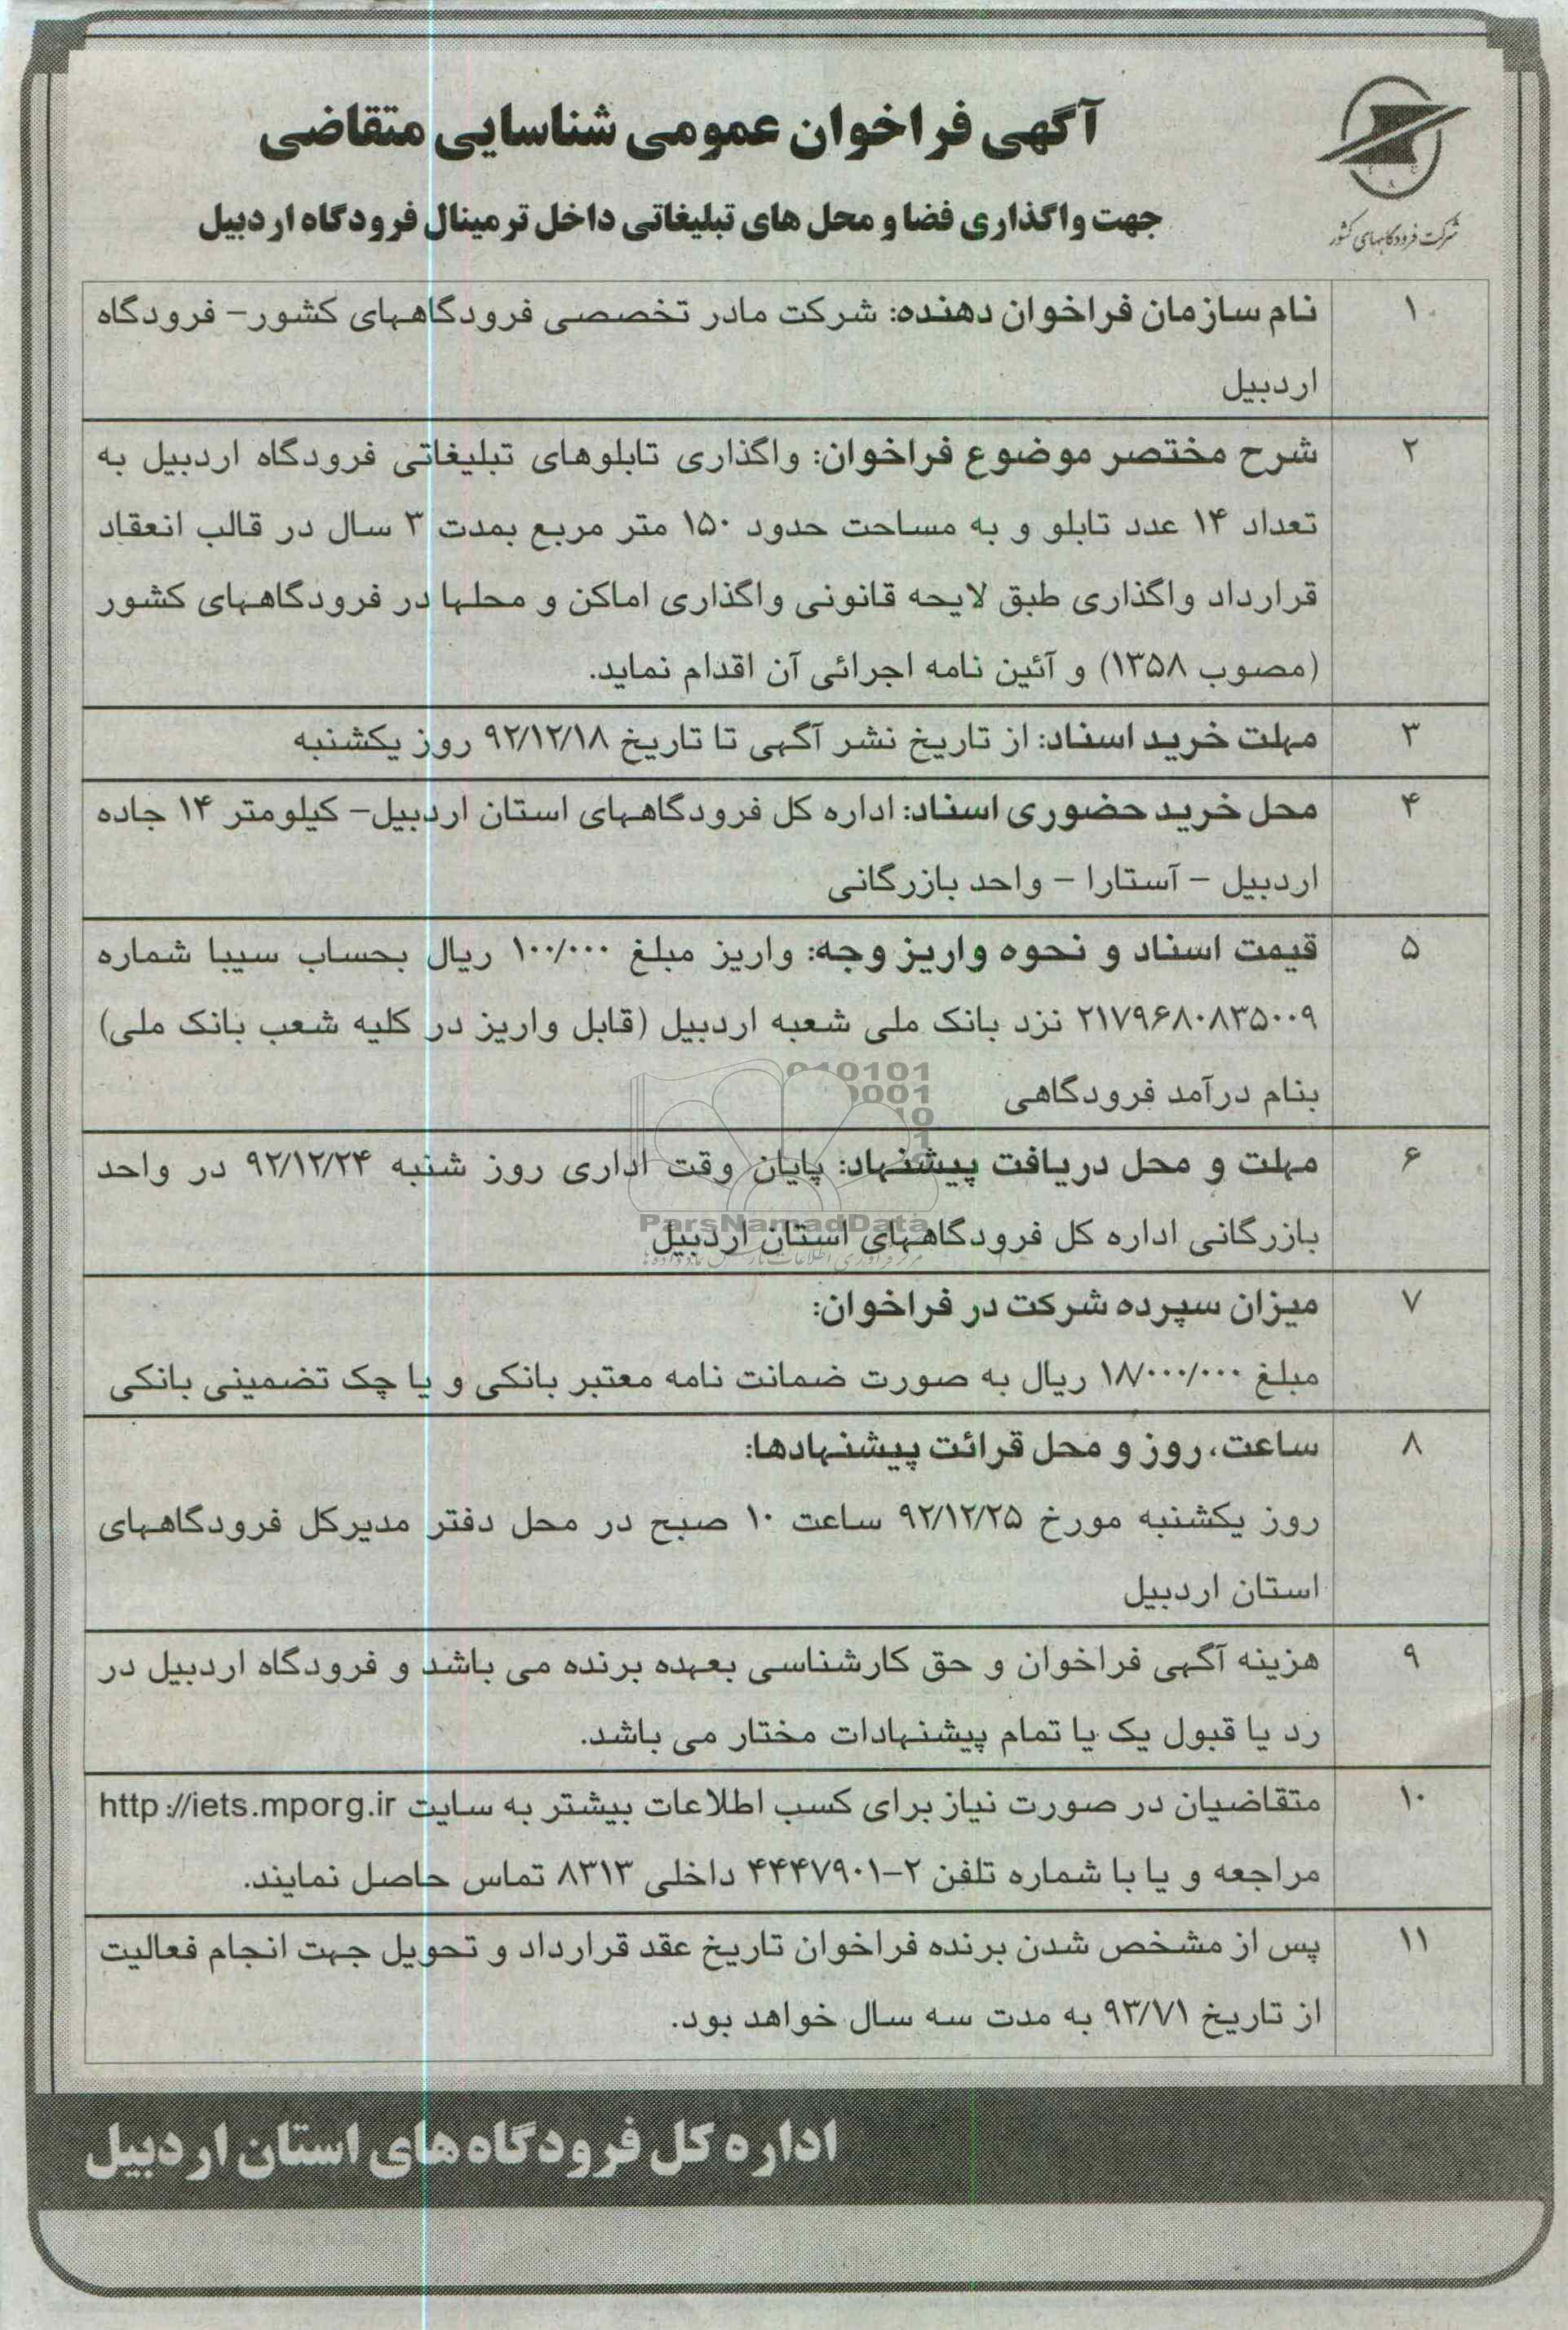 آگهی فراخوان عمومی شناسایی متقاضی
جهت واگذاری فضا و محل های تبلیغاتی داخل ترمینال فرودگاه اردبیل
شرکت فرودگاههای کشور
۱ نام سازمان فراخوان دهنده: شرکت مادر تخصصی فرودگاههای کشور- فرودگاه
اردبیل
۲ شرح مختصر موضوع فراخوان: واگذاری تابلوهای تبلیغاتی فرودگاه اردبیل به
تعداد ۱۴ عدد تابلو و به مساحت حدود ۱۵۰ متر مربع بمدت ۳ سال در قالب انعقاد
قرارداد واگذاری طبق لایحه قانونی واگذاری اماکن و محلها در فرودگاههای کشور
(مصوب ۱۳۵۸) و آئین نامه اجرائی آن اقدام نماید.
۳ مهلت خرید اسناد: از تاریخ نشر آگهی تا تاریخ ۹۲/۱۲/۱۸ روز یکشنبه
۴ محل خرید حضوری اسناد: اداره کل فرودگاههای استان اردبیل- کیلومتر ۱۴ جاده
اردبیل - آستارا - واحد بازرگانی
۵ قیمت اسناد و نحوه واریز وجه: واریز مبلغ ۱۰۰/۰۰۰ ریال بحساب سیبا شماره
۲۱۷۹۶۸۰۸۳۵۰۰۹ نزد بانک ملی شعبه اردبیل (قابل واریز در کلیه شعب بانک ملی)
بنام درآمد فرودگاهی
۶ مهلت و محل دریافت پیشنهاد: پایان وقت اداری روز شنبه ۹۲/۱۲/۲۴ در واحد
بازرگانی اداره کل فرودگاههای استان اردبیل
ParsNamadData
۷ میزان سپرده شرکت در فراخوان:
مبلغ ۱۸/۰۰۰/۰۰۰ ریال به صورت ضمانت نامه معتبر بانکی و یا چک تضمینی بانکی
۸ ساعت، روز و محل قرائت پیشنهادها:
روز یکشنبه مورخ ۹۲/۱۲/۲۵ ساعت ۱۰ صبح در محل دفتر مدیرکل فرودگاههای
استان اردبیل
۹ هزینه آگهی فراخوان و حق کارشناسی بعهده برنده می باشد و فرودگاه اردبیل در
رد یا قبول یک یا تمام پیشنهادات مختار می باشد.
۱۰ متقاضیان در صورت نیاز برای کسب اطلاعات بیشتر به سایت http://iets.mporg.ir
مراجعه و یا با شماره تلفن ۲-۴۴۴۷۹۰۱ داخلی ۸۳۱۳ تماس حاصل نمایند.
۱۱ پس از مشخص شدن برنده فراخوان تاریخ عقد قرارداد و تحویل جهت انجام فعالیت
از تاریخ ۹۳/۷۱ به مدت سه سال خواهد بود.
اداره کل فرودگاه های استان اردبیل